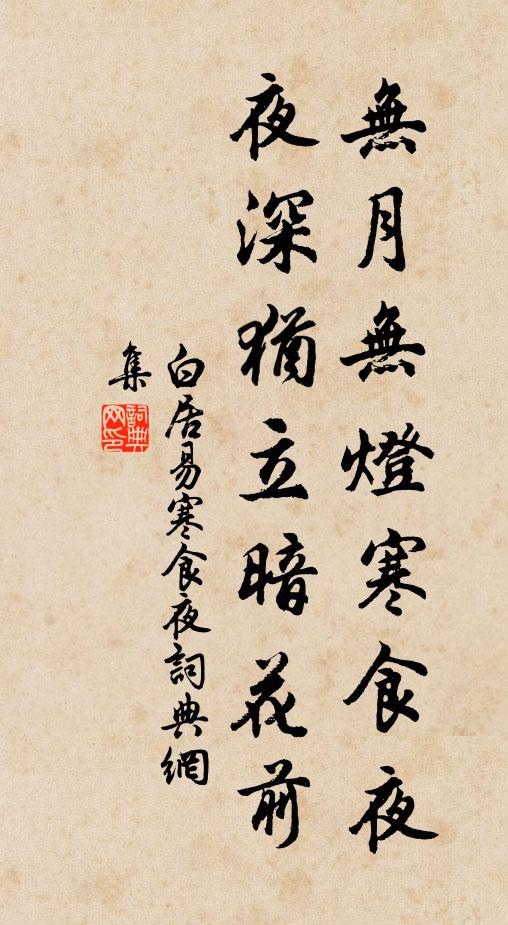 無月無燈寒食夜
夜深猶立暗花前
白居易寒食夜詞典網
集
詞典网印